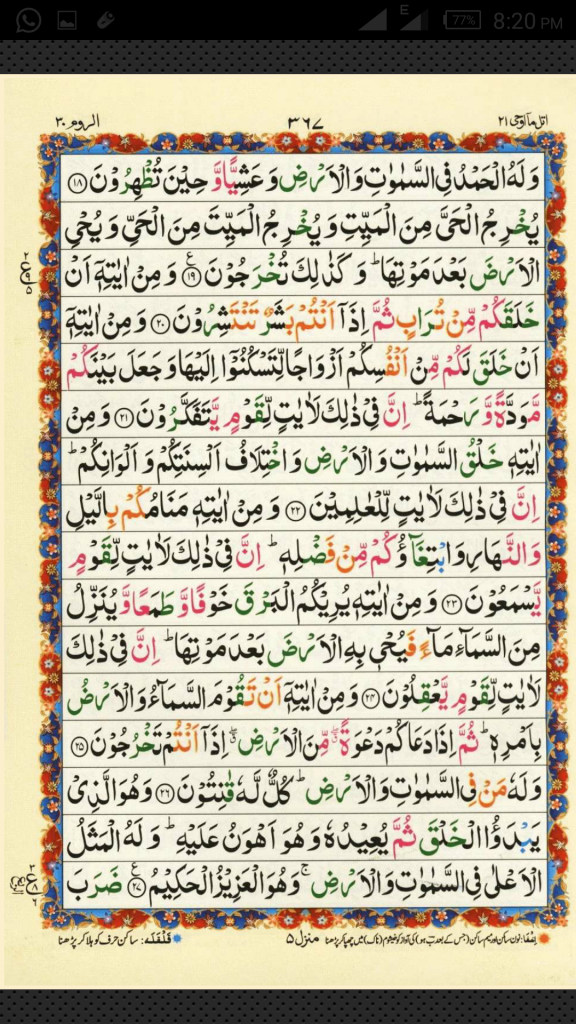 E 77% 8:20 PM
اتل ماۤ اوحی ۲۱ ۳۶۷ الروم ۳۰
وَلَهُ الْحَمْدُ فِی السَّمٰوٰتِ وَالْاَرْضِ وَعَشِیًّا وَّحِیْنَ تُظْهِرُوْنَ ﴿۱۸﴾
یُخْرِجُ الْحَیَّ مِنَ الْمَیِّتِ وَیُخْرِجُ الْمَیِّتَ مِنَ الْحَیِّ وَیُحْیِ
الْاَرْضَ بَعْدَ مَوْتِهَا ؕ وَكَذٰلِكَ تُخْرَجُوْنَ ﴿۱۹﴾ ع وَمِنْ اٰیٰتِهٖۤ اَنْ
خَلَقَكُمْ مِّنْ تُرَابٍ ثُمَّ اِذَاۤ اَنْتُمْ بَشَرٌ تَنْتَشِرُوْنَ ﴿۲۰﴾ وَمِنْ اٰیٰتِهٖۤ
اَنْ خَلَقَ لَكُمْ مِّنْ اَنْفُسِكُمْ اَزْوَاجًا لِّتَسْكُنُوْۤا اِلَیْهَا وَجَعَلَ بَیْنَكُمْ
مَّوَدَّةً وَّرَحْمَةً ؕ اِنَّ فِیْ ذٰلِكَ لَاٰیٰتٍ لِّقَوْمٍ یَّتَفَكَّرُوْنَ ﴿۲۱﴾ وَمِنْ
اٰیٰتِهٖ خَلْقُ السَّمٰوٰتِ وَالْاَرْضِ وَاخْتِلَافُ اَلْسِنَتِكُمْ وَاَلْوَانِكُمْ ؕ
اِنَّ فِیْ ذٰلِكَ لَاٰیٰتٍ لِّلْعٰلِمِیْنَ ﴿۲۲﴾ وَمِنْ اٰیٰتِهٖ مَنَامُكُمْ بِالَّیْلِ
وَالنَّهَارِ وَابْتِغَآؤُكُمْ مِّنْ فَضْلِهٖ ؕ اِنَّ فِیْ ذٰلِكَ لَاٰیٰتٍ لِّقَوْمٍ
یَّسْمَعُوْنَ ﴿۲۳﴾ وَمِنْ اٰیٰتِهٖ یُرِیْكُمُ الْبَرْقَ خَوْفًا وَّطَمَعًا وَّیُنَزِّلُ
مِنَ السَّمَآءِ مَآءً فَیُحْیٖ بِهِ الْاَرْضَ بَعْدَ مَوْتِهَا ؕ اِنَّ فِیْ ذٰلِكَ
لَاٰیٰتٍ لِّقَوْمٍ یَّعْقِلُوْنَ ﴿۲۴﴾ وَمِنْ اٰیٰتِهٖۤ اَنْ تَقُوْمَ السَّمَآءُ وَالْاَرْضُ
بِاَمْرِهٖ ؕ ثُمَّ اِذَا دَعَاكُمْ دَعْوَةً ۖ مِّنَ الْاَرْضِ ۖ اِذَاۤ اَنْتُمْ تَخْرُجُوْنَ ﴿۲۵﴾
وَلَهٗ مَنْ فِی السَّمٰوٰتِ وَالْاَرْضِ ؕ كُلٌّ لَّهٗ قٰنِتُوْنَ ﴿۲۶﴾ وَهُوَ الَّذِیْ
یَبْدَؤُا الْخَلْقَ ثُمَّ یُعِیْدُهٗ وَهُوَ اَهْوَنُ عَلَیْهِ ؕ وَلَهُ الْمَثَلُ
الْاَعْلٰی فِی السَّمٰوٰتِ وَالْاَرْضِ ۚ وَهُوَ الْعَزِیْزُ الْحَكِیْمُ ﴿۲۷﴾ ع ضَرَبَ
منزل ۵
قَلْقَلَه: ساکن حرف کو ہلا کر پڑھنا